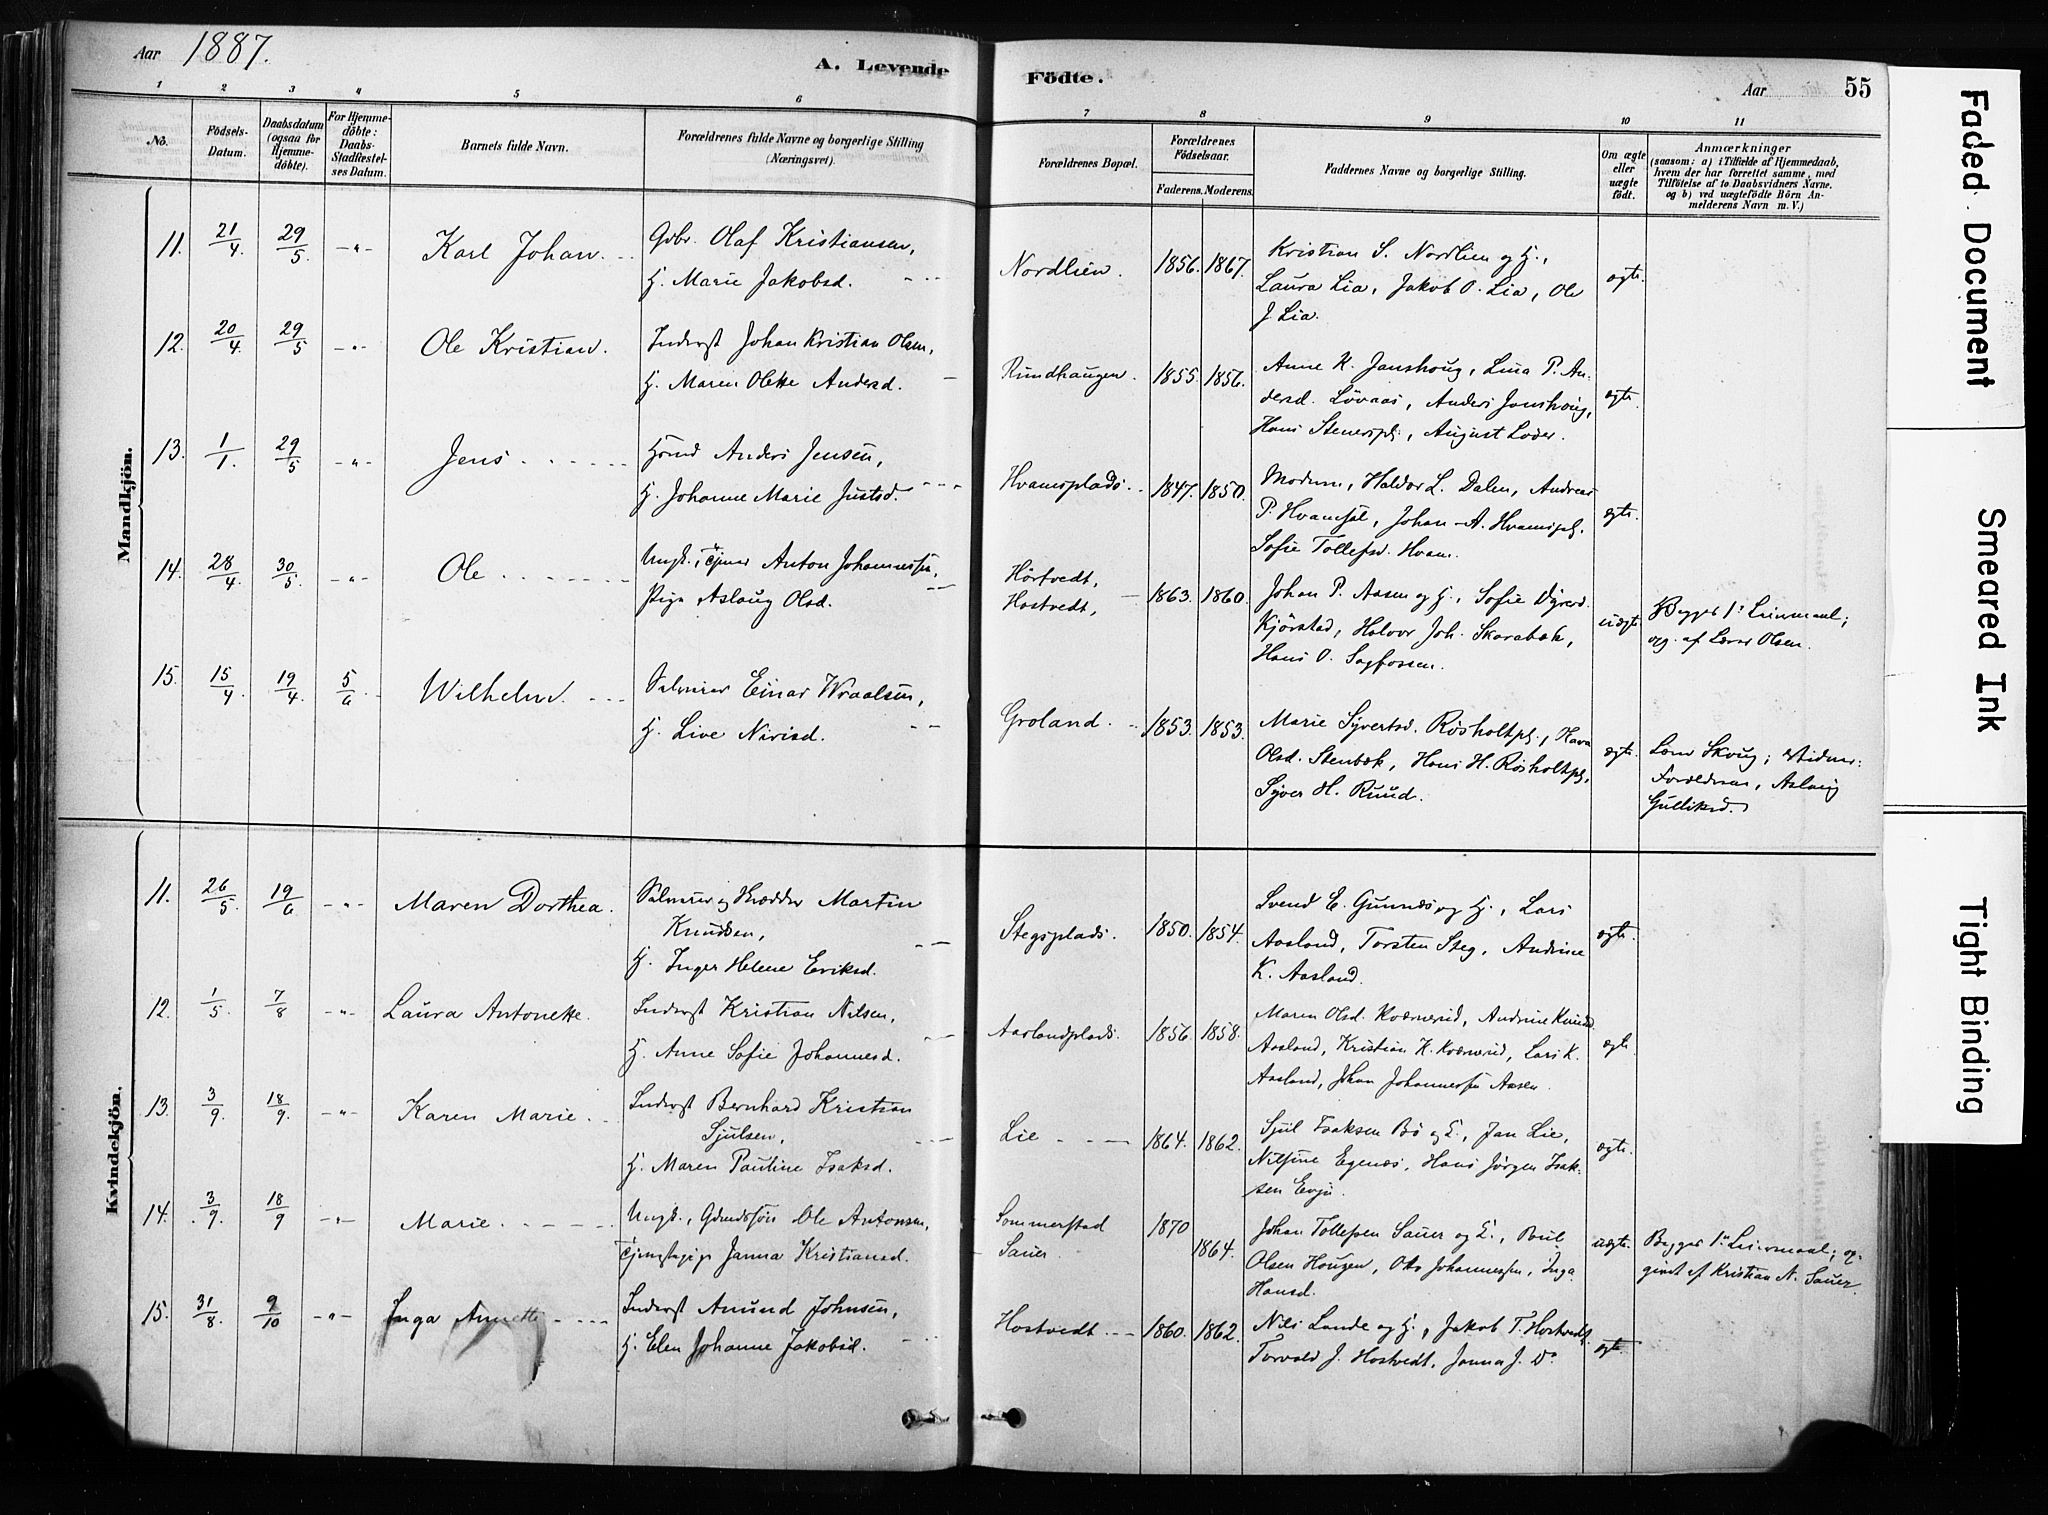 Aar 1887.
A. Levende
Födte.
Aar
55
1 2 3 4 5 6 7 8 9 10 11
No.
Födsels-Datum.
Daabsdatum (ogsaa for Hjemmedöbte).
For Hjemmedöbte: Daabs-Stadfæstelses Datum.
Barnets fulde Navn.
Forældrenes fulde Navne og borgerlige Stilling (Næringsvei).
Forældrenes Bopæl.
Forældrenes Födselsaar.
Faderens. Moderens.
Faddernes Navne og borgerlige Stilling.
Om ægte eller uægte födt.
Anmærkninger
(saasom: a) i Tilfælde af Hjemmedaab,
hvem der har forrettet samme, med
Tilföielse af to Daabsvidners Navne.
og b) ved uægtefödte Börn An-
melderens Navn m. V.)
Mandkjön.
11. 21/4 29/5 -"- Karl Johan.
Gbr. Olaf Kristiansen,
H. Marie Jakobsd.
Nordlien. 1856. 1867.
Kristian S. Nordlien og H.,
Laura Lia, Jakob O. Lia, Ole
J. Lia.
ægte.
12. 20/4 29/5 -"- Ole Kristian.
Inderst Johan Kristian Olsen,
H. Maren Olette Andersd.
Rundhaugen. 1855. 1856.
Anne K. Janshoug, Lina P. An-
dersd. Lövaas, Anders Janshoug,
Hans Stenerspl., August Loder.
ægte.
13. 1/1. 29/5 -"- Jens
Hsmd Anders Jensen,
H. Johanne Marie Justsd.
Hvamsplads. 1847. 1850.
Modern, Haldor L. Dalen, Andreas
P. Hvamspl., Johan A. Hvamspl.
Sofie Tollefsd. Hvam.
ægte.
14. 28/4 30/5 -"- Ole
Ungk., Tjener Anton Johannessen,
Pige Aslaug Olsd.
Hörtvedt,
Hostvedt, 1863. 1860.
Johan P. Aasen og H., Sofie
Kjörstad, Halvor Joh. Skarabæk,
Hans O. Sagfossen.
uægte
Begges 1ste Leiermaal;
opg. af Lærer Olsen.
15. 15/4 19/4 5/6 Wilhelm.
Selveier Einar Wraalsen,
H. Live Nirisd.
Groland. 1853. 1853.
Marie Syvertsd. Røsholtpl.,
Olsd. Stenbæk, Hans H. Røsholtpl.,
Syver H. Ruud.
ægte.
Lær Skoug; Vidner:
Forældrene, Aslaug
Gulliksd.
Kvindekjön.
11. 26/5. 19/6 -"- Maren Dorthea.
Selveier og Skrædder Martin
Knudsen,
H. Inger Helene Eriksd.
Stegsplads. 1850. 1854.
Svend E. Gunnes og H., Lars
Aasland, Torsten Steg, Andrine
K. Aasland.
ægte.
12. 1/5 7/8 -"- Laura Antonette.
Inderst Kristian Nilsen,
H. Anne Sofie Johannesd.
Aaslandplads. 1856. 1858.
Maren Olsd. Kværnerud, Andrine Knudsd.
Aasland, Kristian K. Kværnerud, Lars K.
Aasland, Johan Johannessen Aasen.
ægte.
13. 3/9. 18/9. -"- Karen Marie.
Inderst Bernhard Kristian
Sjulsen,
H. Maren Pauline Isaksd.
Lie 1864. 1862.
Sjul Isaksen Bø og H., Jan Lie,
Nilsine Egenæs, Hans Jörgen Isak-
sen Evju.
ægte.
14. 3/9. 18/9 -"- Marie.
Ungk., Gmdssön Ole Antonsen,
Tjenestepige Janna Kristiansd.
Sommerstad
Sauer. 1870 1864.
Johan Tollefsen Sauer og H.,
Olsen Hougen, Otto Johannessen, Inga
Hansd.
uægte.
Begges 1ste Leiermaal; op-
givet af Kristian N. Sauer.
15. 31/8. 9/10 -"- Inga Annette
Inderst Amund Johnsen,
H. Elen Johanne Jakobsd.
Hostvedt 1860. 1862.
Nils Lande og H., Jakob T. Hostvedt,
Torvald J. Hostvedt, Janna J. Do
ægte.
Faded Document
Smeared Ink
Tight Binding